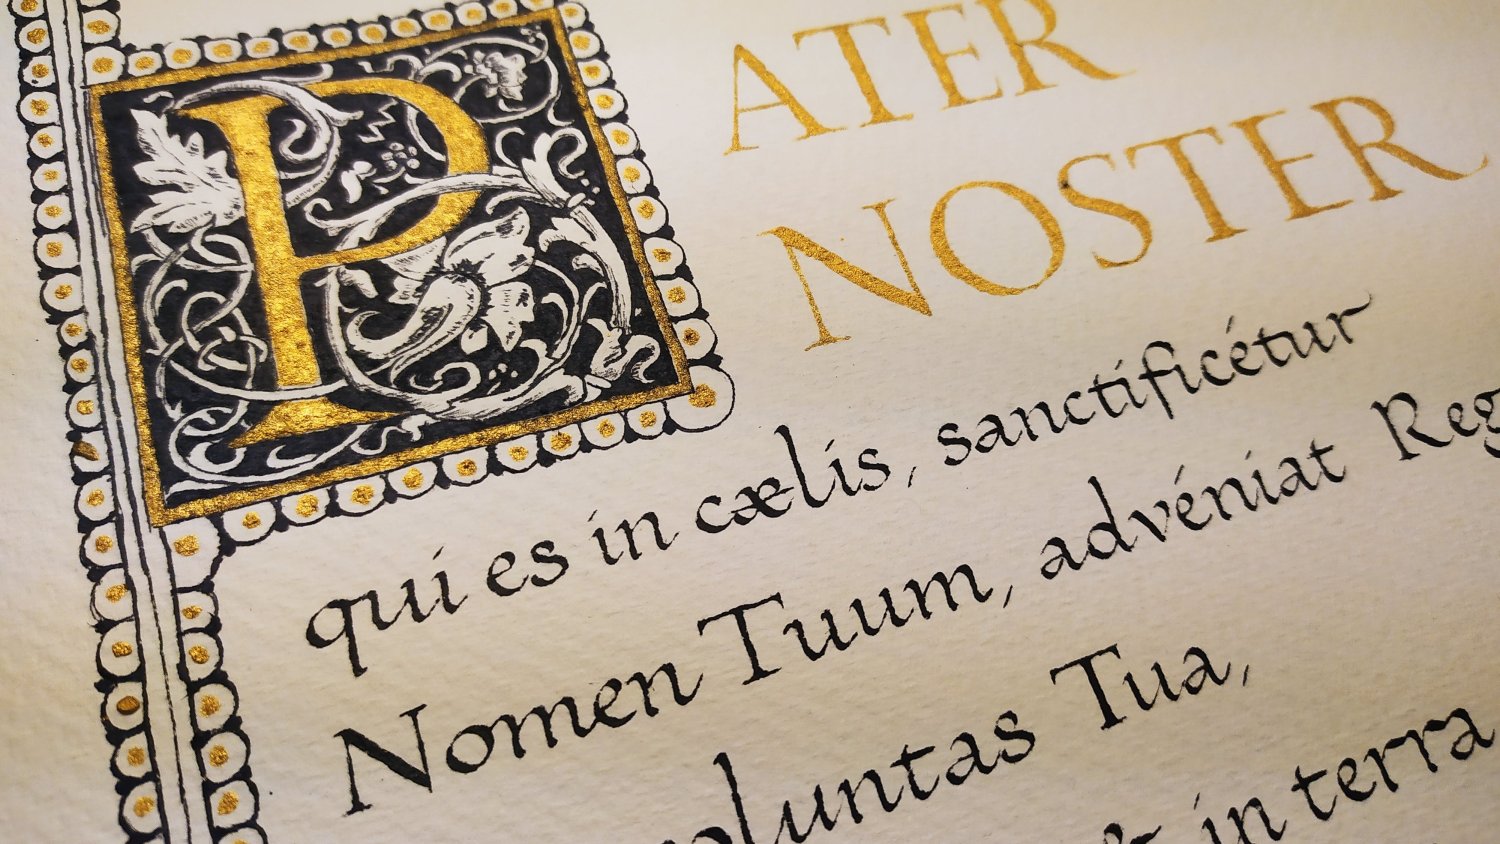 PATER
NOSTER
qui es in cælis, sanctificétur
Nomen Tuum, advéniat Reg
oluntas Tua,
& in terra